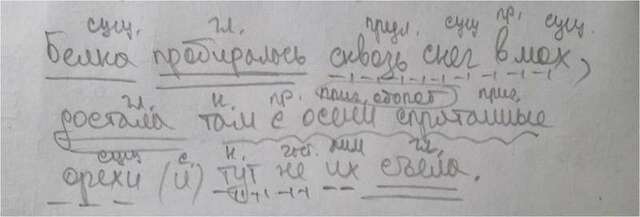 сущ. гл. предл. сущ пр. сущ.
Белка пробиралась сквозь снег в мох,
гл. н. пр. прич.
достала там с осени спрятанные
сущ с. н. част. мим гл.
орехи (и) тут же их съела.